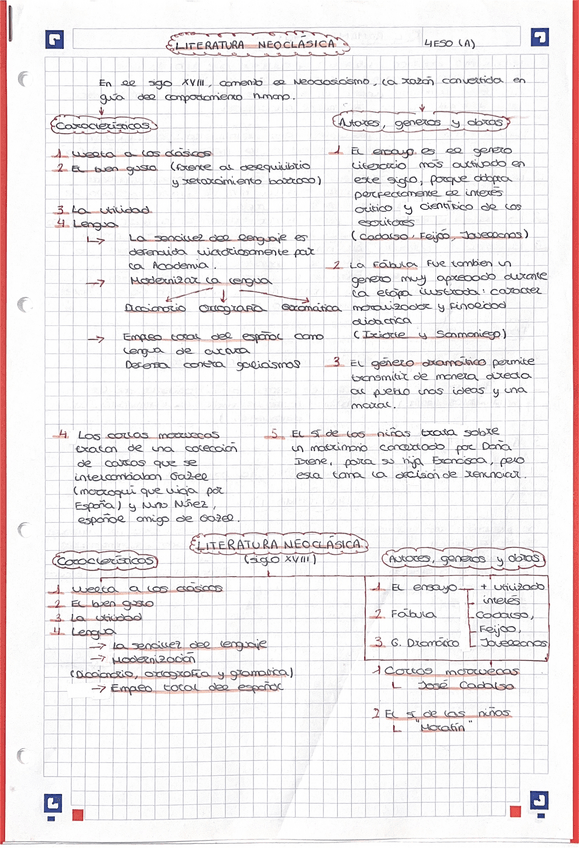 LITERATURA NEOCLÁSICA
4ESO (A)
En el siglo XVIII, comenzó el Neoclasicismo, la razón convertida en
guía del comportamiento humano.
Características
1. Vuelta a los clásicos
2. El buen gusto (frente al desequilibrio
y retorcimiento barroco)
3. La utilidad
4. Lengua
↳ La sencillez del lenguaje es
defendida victoriosamente por
la Academia.
→ Modernizar la lengua
Diccionario Ortografía Gramática
→ Empleo total del español como
lengua de cultura
Defensa contra galicismos
Autores, generos y obras
1. El ensayo es el genero
literario más cultivado en
este siglo, porque adopta
perfectamente el interés
crítico y científico de los
escritores
(Cadalso, Feijoo, Jovellanos)
2. La Fábula fue tambien un
genero muy apreciado durante
la etapa ilustrada: caracter
moralizador y finalidad
didáctica
(Iriarte y Samaniego)
3. El género dramático permite
transmitir de manera directa
al pueblo unas ideas y una
moral.
4. Las cartas marruecas
tratan de una colección
de cartas que se
intercambian Gazel
(marroquí que viaja por
España) y Nuño Núñez,
español amigo de Gazel.
5. El sí de las niñas trata sobre
un matrimonio concertado por Doña
Irene, para su hija Francisca, pero
esta toma la decisión de renunciar.
LITERATURA NEOCLÁSICA
(siglo XVIII)
Características
1. Vuelta a los clásicos
2. El buen gusto
3. La utilidad
4. Lengua
→ La sencillez del lenguaje
→ Modernización
(Diccionario, ortografía y gramatica)
→ Empleo total del español
Autores, generos y obras
1. El ensayo
+ utilizado
interés
2. Fábula
Cadalso,
Feijoo,
3. G. Dramático
Jovellanos
1 Cartas marruecas
└ José Cadalso
2 El sí de las niñas
└ "Moratín"